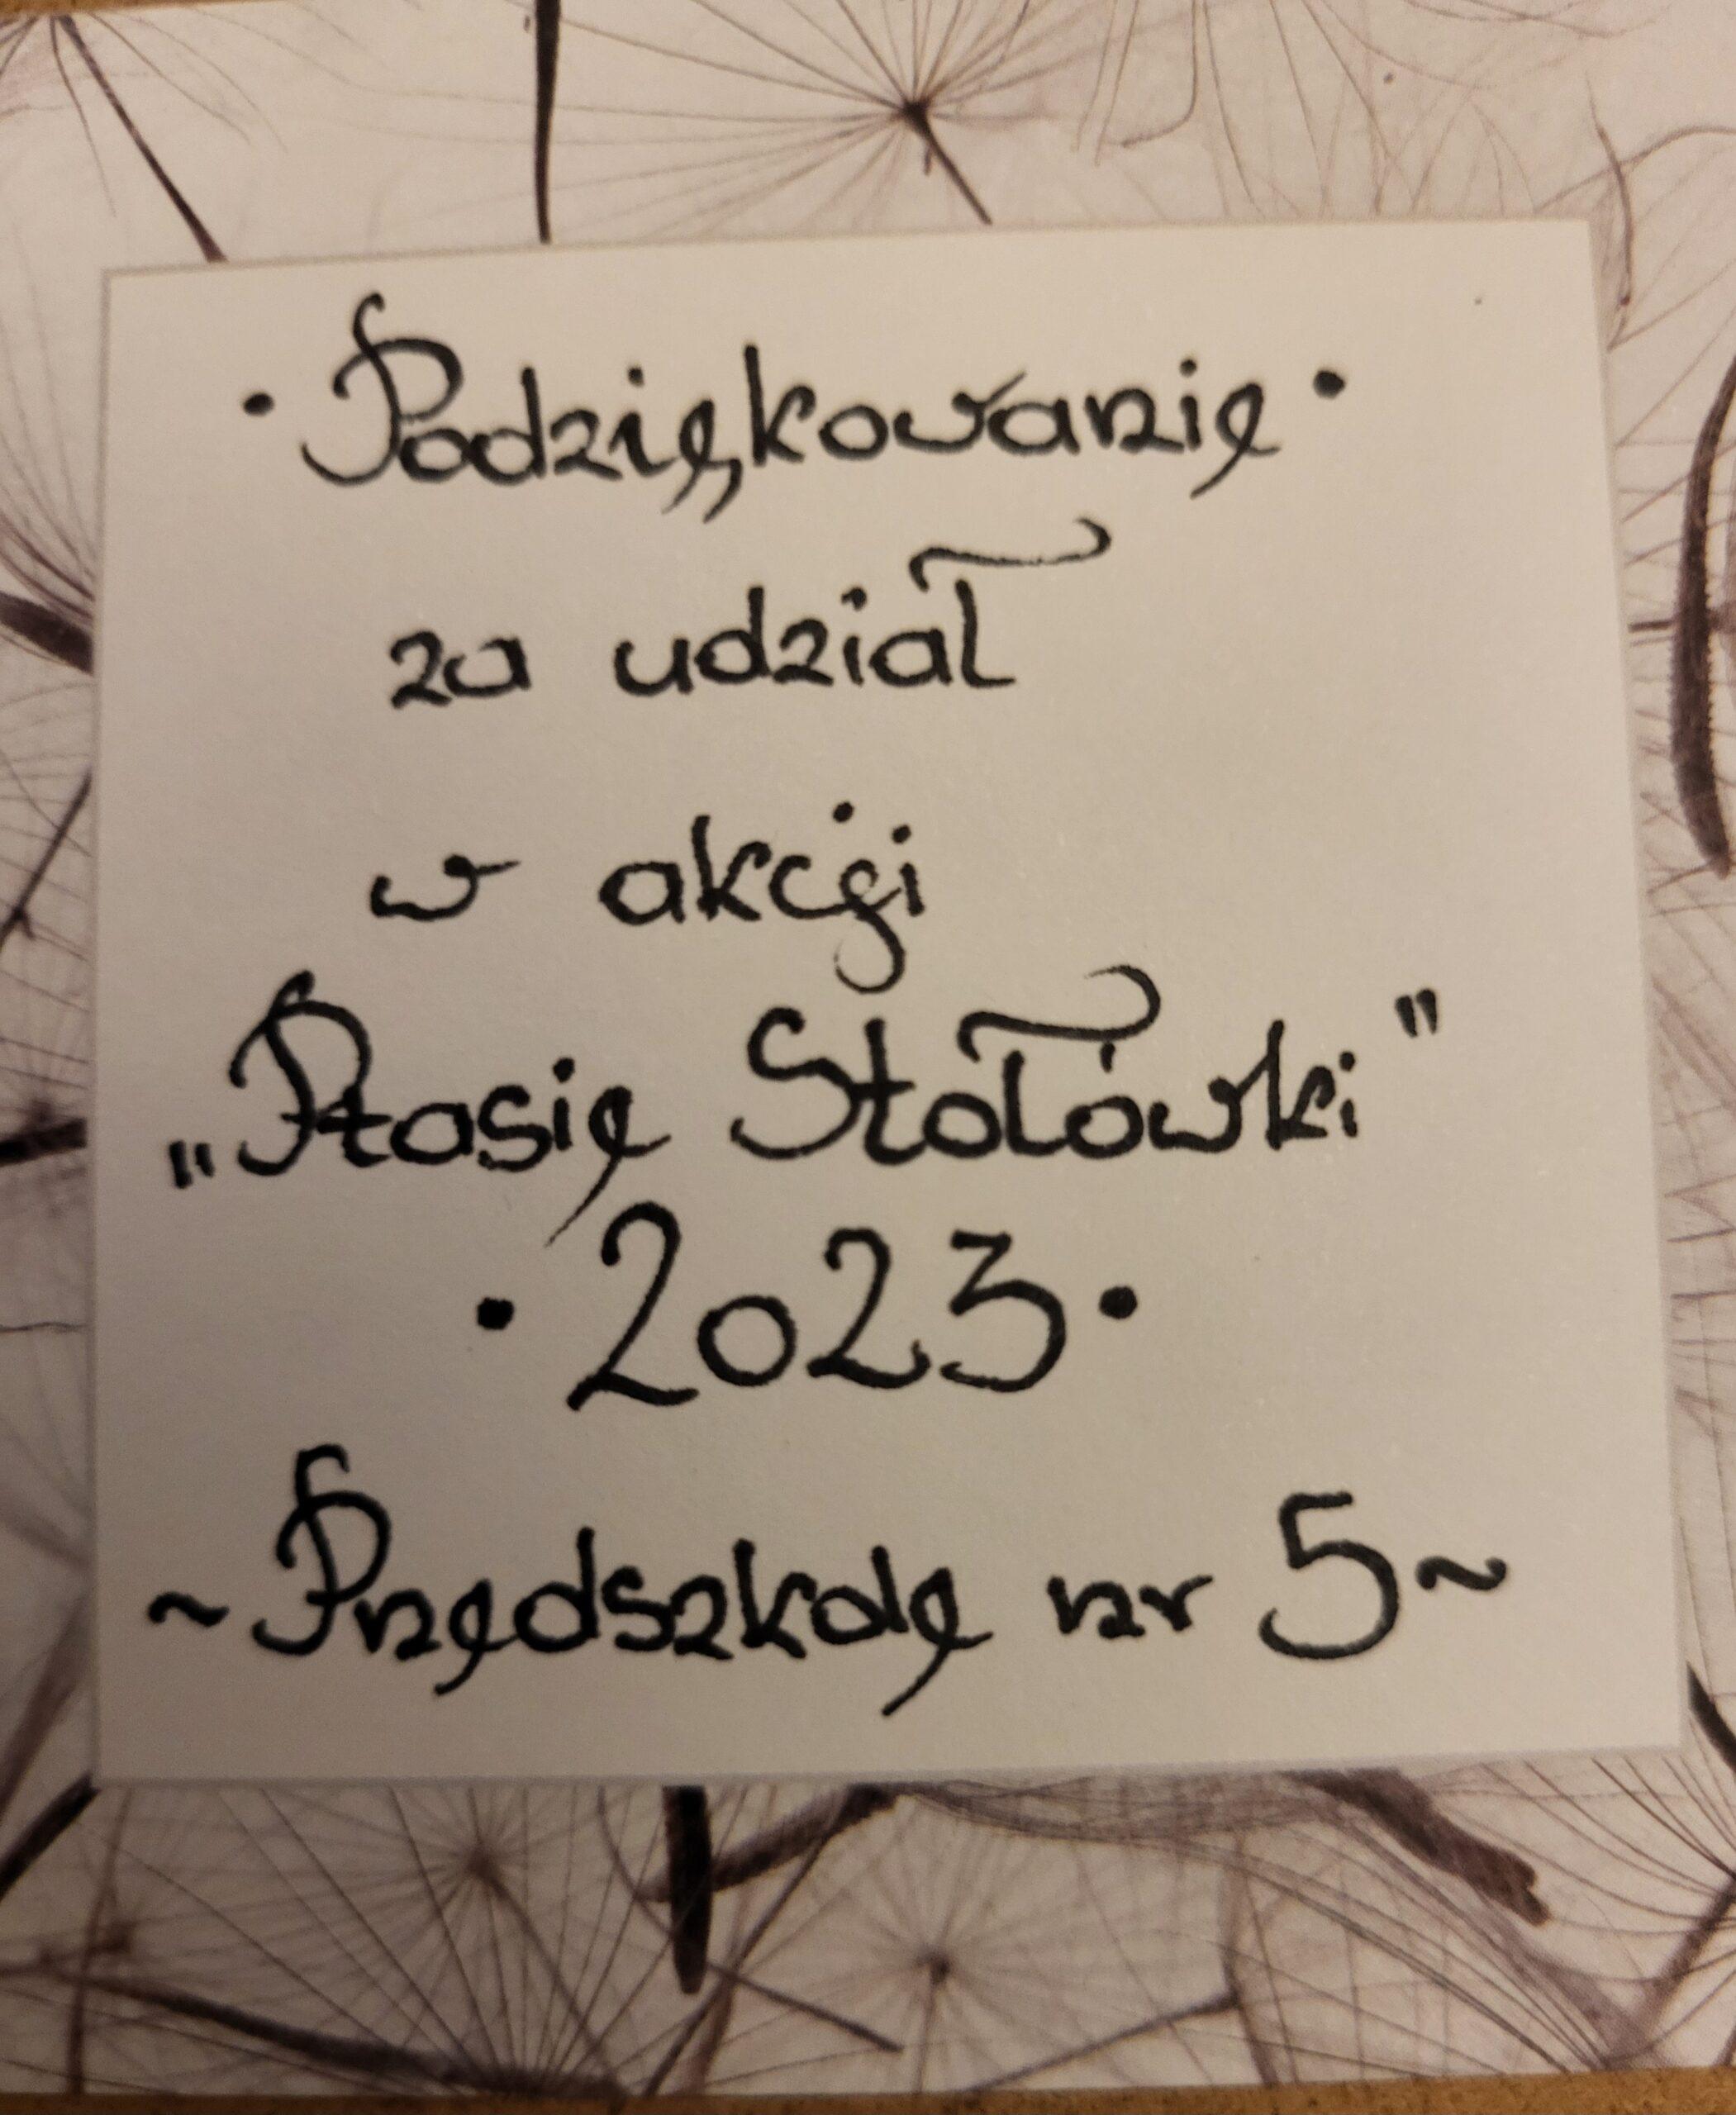 • Podziękowanie •
za udział
w akcji
„Ptasie Stołówki"
• 2023 •
~ Przedszkole nr 5 ~